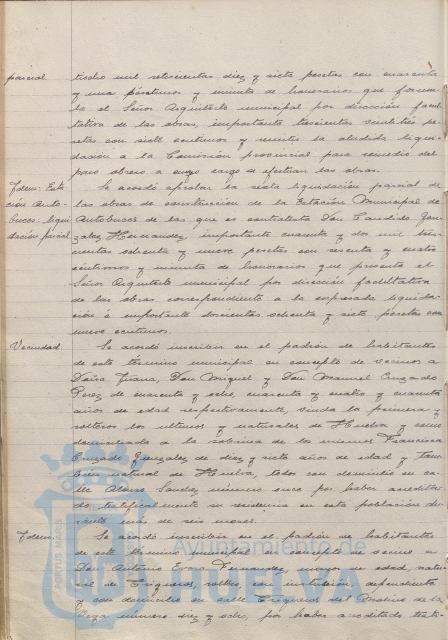 parcial
ticuho mil setescientas diez y siete pesetas con cuarenta
y una céntimos y minuta de honorarios que formu-
la el Señor Arquitecto municipal por dirección facul-
tativa de las obras, importante trescientas veintitrés pe-
setas con siete centimos y remitir la aludida liqui-
dación a la Comisión provincial para remedio del
paro obrero a cuyo cargo se efectuan las obras.
Idem: Esta-
ción Auto-
buses: liqui-
dación parcial
Se acordó aprobar la sexta liquidación parcial de
las obras de construcción de la Estación Municipal de
Autobuses de las que es contratista Don Candido Gon-
zalez Hernandez, importante cuarenta y dos mil tres-
cientas ochenta y nueve pesetas con sesenta y cuatro
centimos y minuta de honorarios que presenta el
Señor Arquitecto municipal por dirección facultativa
de las obras correspondiente a la expresada liquida-
ción é importante doscientas ochenta y siete pesetas con
nueve centimos.
Vecindad.
Se acordó inscribir en el padrón de habitantes
de este término municipal en concepto de vecinos a
Doña Juana, Don Miguel y Don Manuel Cruzado
Perez de cuarenta y ocho, cuarenta y cuatro y cuarenta
años de edad respectivamente, viuda la primera y
solteros los ultimos y naturales de Huelva y como
domiciliada a la sobrina de los mismos Francisca
Cruzado Gonzalez de diez y siete años de edad y tam-
bien natural de Huelva, todos con domicilio en ca-
lle Alonso Sanchez número once por haber acredita-
do testificalmente su residencia en esta población du-
rante más de seis meses.
Idem.
Se acordó inscribir en el padrón de habitantes
de este término municipal en concepto de vecino a
Don Antonio Evora Fernandez, mayor de edad, natu-
ral de Trigueros, soltero, con instrucción, dependiente
y con domicilio en calle Trigueros del
Vega número diez y ocho, por haber acreditado testi-
Ayuntamiento de
HUELVA
PORTUS MARIS